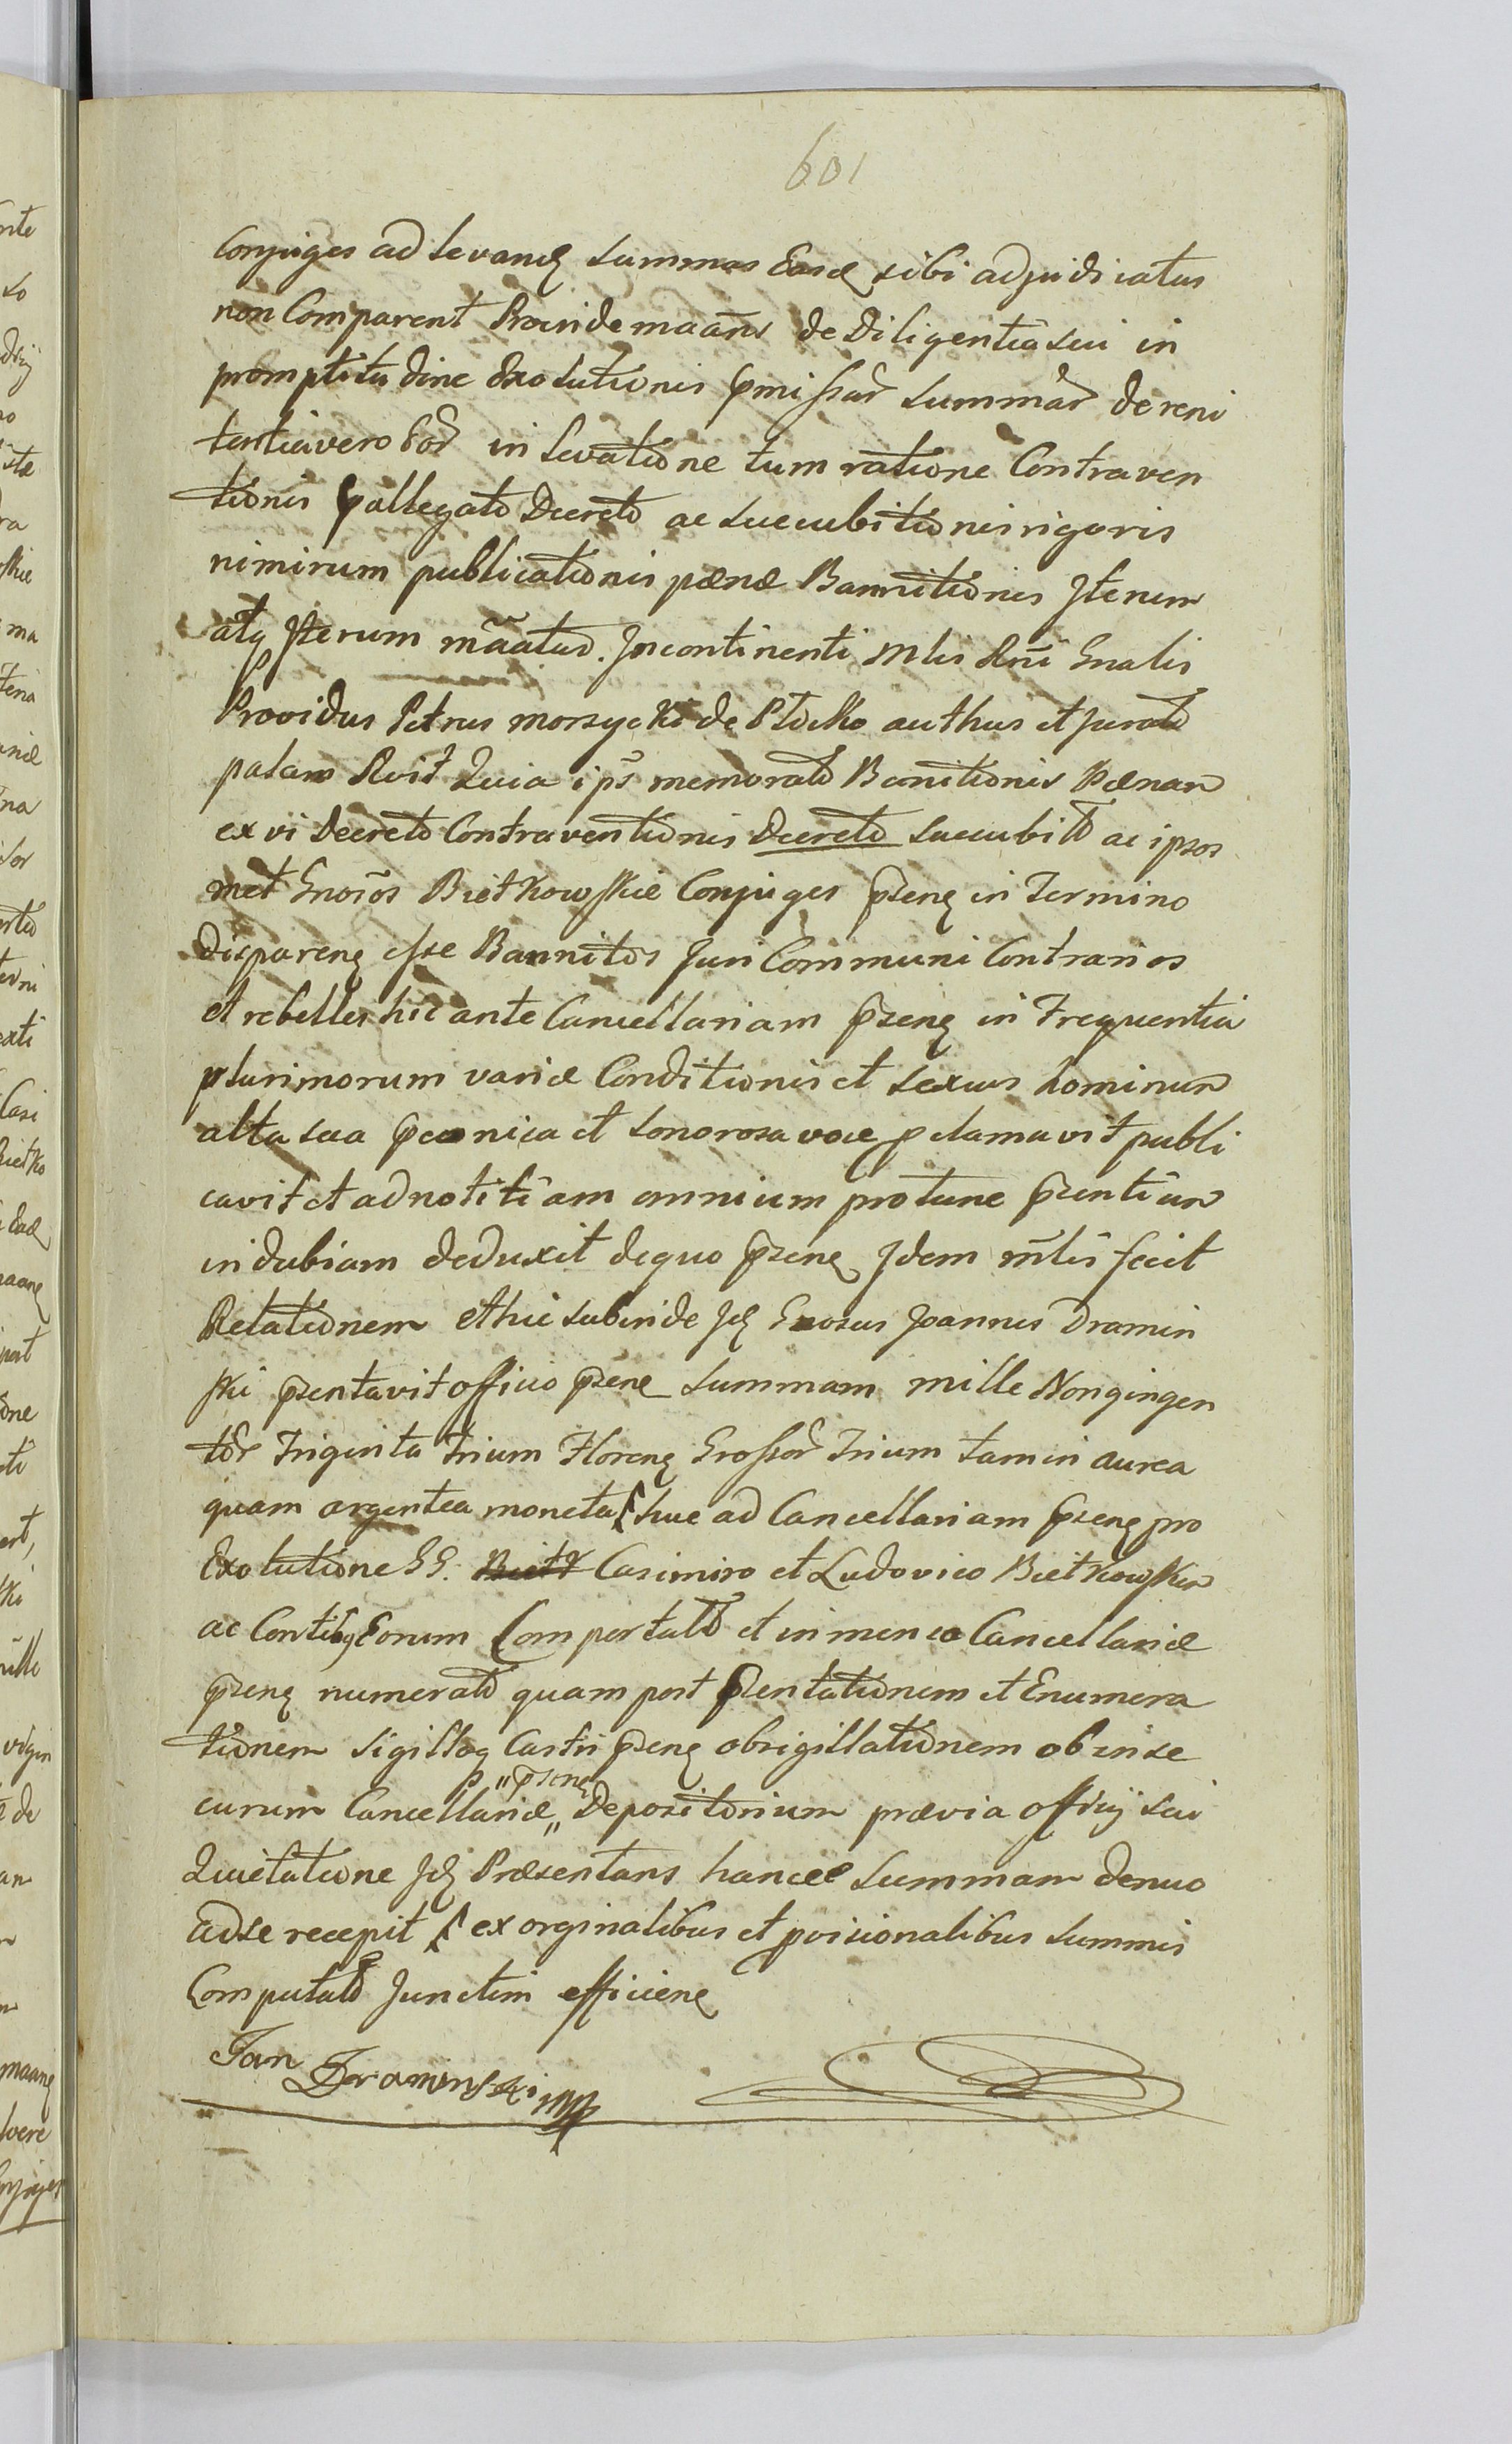 601
Conjuges ad levand summas Easd sibi adjudicatas
non Comparent Proinde maans de Diligentia sui in
promptitudine Exolutionis pmissar summar de reni
tentia vero Eor in levatione tum ratione Contraven
tionis pallegato Decreto ac succubitionis rigoris
nimirum publicationis pænæ Bannitionis Iterum
atq Iterum mãatur. Incontinenti Mlis Rni Gnalis
Providus Petrus morzycki de Plocko authus et jurato
palam Rvit Quia ips memorato Banitionis Pænam
ex vi Decreto Contraventionis Decreto succubito ac ipsos
met Gnosos Bietkowskie Conjuges pzen in Termino
disparen esse Bannitos Juri Communi Contrarios
et rebelles hic ante Cancellariam pzen in Frequentia
plurimorum variæ Conditionis et sexus hominum
alta sua pconica et sonorosa voce pclamavit publi
cavit et ad notitiam omnium pro tunc pzentium
indubiam deduxit de quo pzen Idem mlis fecit
Relationem et hic subinde Id Gnosus Joannes Dramin
ski pzentavit officio pzen summam mille Nongingen
tor Triginta Trium Floren Grossor Trium tam in aurea
quam argentea moneta huc ad Cancellariam pzen pro
Exolutione GG. Bietk Casimiro et Ludovico Bietkowskim
ac Contibq Eorum Comportato et in menco Cancellariæ
pzen numerato quam post pzentationem et Enumera
tionem sigilloq Castri pzen obsigillationem ob inse
curum Cancellariæ „ Depositorium prævia officij sui
„ pzen
Quietatione Id Præsentans hancce summam denuo
ad se recepit ex orginalibus et poisionalibus summis
Computato Junctim efficien
Jan Draminski mp